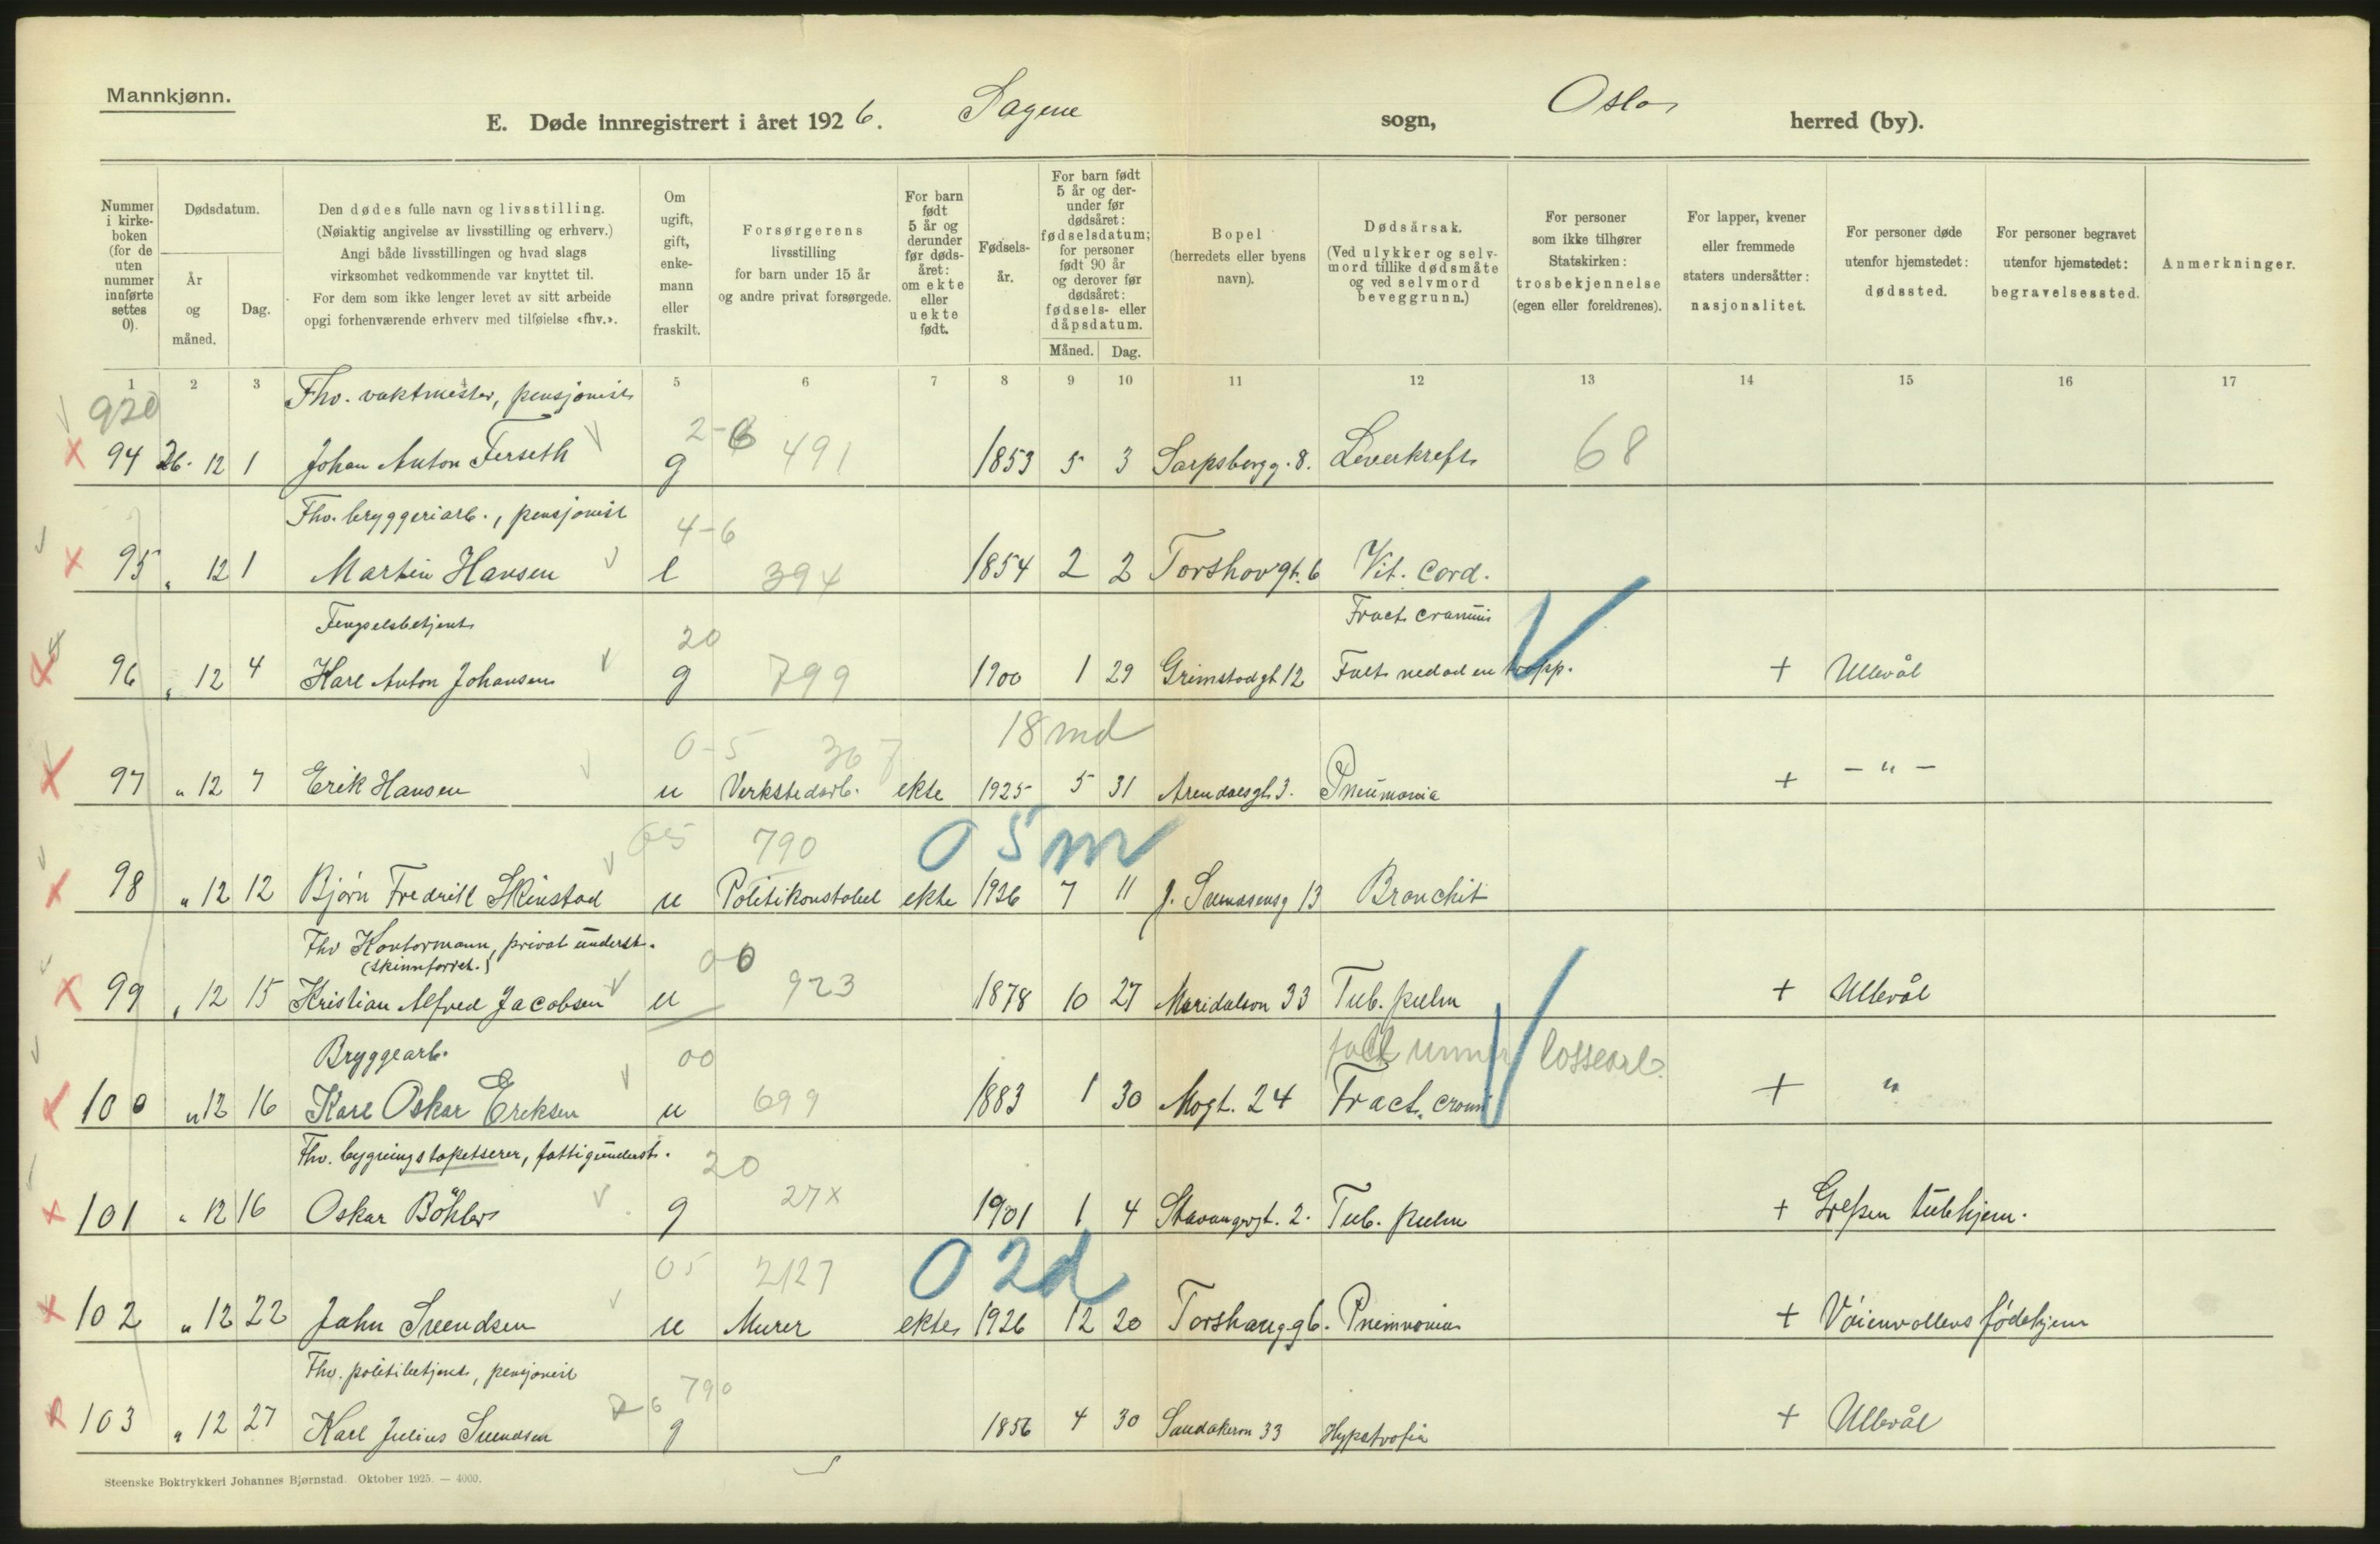 Mannkjønn.
E. Døde innregistrert i året 1926. Sagene sogn, Oslo herred (by).
Nummer i kirkeboken (for de uten nummer innførte settes 0).
Dødsdatum.
År og måned.
Dag.
Den dødes fulle navn og livsstilling.
(Nøiaktig angivelse av livsstilling og erhverv.)
Angi både livsstillingen og hvad slags
virksomhet vedkommende var knyttet til.
For dem som ikke lenger levet av sitt arbeide
opgi forhenværende erhverv med tilføielse «fhv.».
Om ugift, gift, enkemann eller fraskilt.
Forsørgerens
livsstilling
for barn under 15 år
og andre privat forsørgede.
For barn født 5 år og derunder før dødsåret: om ekte eller uekte født.
Fødselsår.
For barn født 5 år og derunder før dødsåret: fødselsdatum; for personer født 90 år og derover før dødsåret: fødsels- eller dåpsdatum.
Måned. Dag.
Bopel
(herredets eller byens
navn).
Dødsårsak.
(Ved ulykker og selvmord tillike dødsmåte og ved selvmord beveggrunn.)
For personer
som ikke tilhører
Statskirken:
trosbekjennelse
(egen eller foreldrenes).
For lapper, kvener
eller fremmede
staters undersåtter:
nasjonalitet.
For personer døde
utenfor hjemstedet:
dødssted.
For personer begravet
utenfor hjemstedet:
begravelsessted.
Anmerkninger.
1 2 3 4 5 6 7 8 9 10 11 12 13 14 15 16 17
920 Fhv. vaktmester, pensjonist 2-6 491 68
94 26. 12 1 Johan Anton Ferseth g 1853 5 3 Sarpsborgg. 8. Leverkreft
Fhv. bryggeriarb., pensjonist 4-6 394
95 " 12 1 Martin Hansen e 1854 2 2 Torshovgt. 6 Vit. cord.
Fengselsbetjent 20 799 Fract. cranii
96 " 12 4 Karl Anton Johansen g 1900 1 29 Grimstadgt 12 Falt ned ad en trapp. + Ullevål
0-5 367 18 md
97 " 12 7 Erik Hansen u Verkstedarb. ekte 1925 5 31 Arendalsgt. 3. Pneumonia + - " -
05 790 0 5 m
98 " 12 12 Bjørn Fredrik Skinstad u Politikonstabel ekte 1926 7 11 J. Svendsensg 13 Bronchit
Fhv Kontormann, privat underst. 00 923
(skinnforret.)
99 " 12 15 Kristian Alfred Jacobsen u 1878 10 27 Maridalsvn 33 Tub. pulm + Ullevål
Bryggearb. 00 699 falt under lossearb.
100 " 12 16 Karl Oskar Eriksen u 1883 1 30 Mogt. 24 Fract. cranii + "
Fhv. bygningstapetserer, fattigunderst. 20 27x
101 " 12 16 Oskar Böhler g 1901 1 4 Stavangergt. 2. Tub. pulm + Grefsen tubhjem.
05 2127 0 2 d
102 " 12 22 John Svendsen u Murer ekte 1926 12 20 Torshaugg 6. Pneimonia + Vøienvollens fødehjem
Fhv. politibetjent, pensjonist 6 790
103 " 12 27 Karl Julius Svendsen g 1856 4 30 Sandakervn 33 Hypetrofia + Ullevål
Steenske Boktrykkeri Johannes Bjørnstad. Oktober 1925. — 4000.